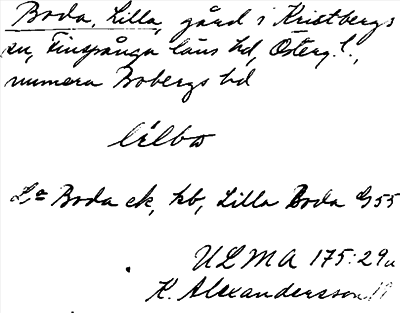 Boda, Lilla, gård i Kristbergs
sn, Finspånga läns hd, Österg.l.,
numera Bobergs hd
lilbo
La Boda ek, kb, Lilla Boda G55
ULMA 175:29a
K. Alexandersson